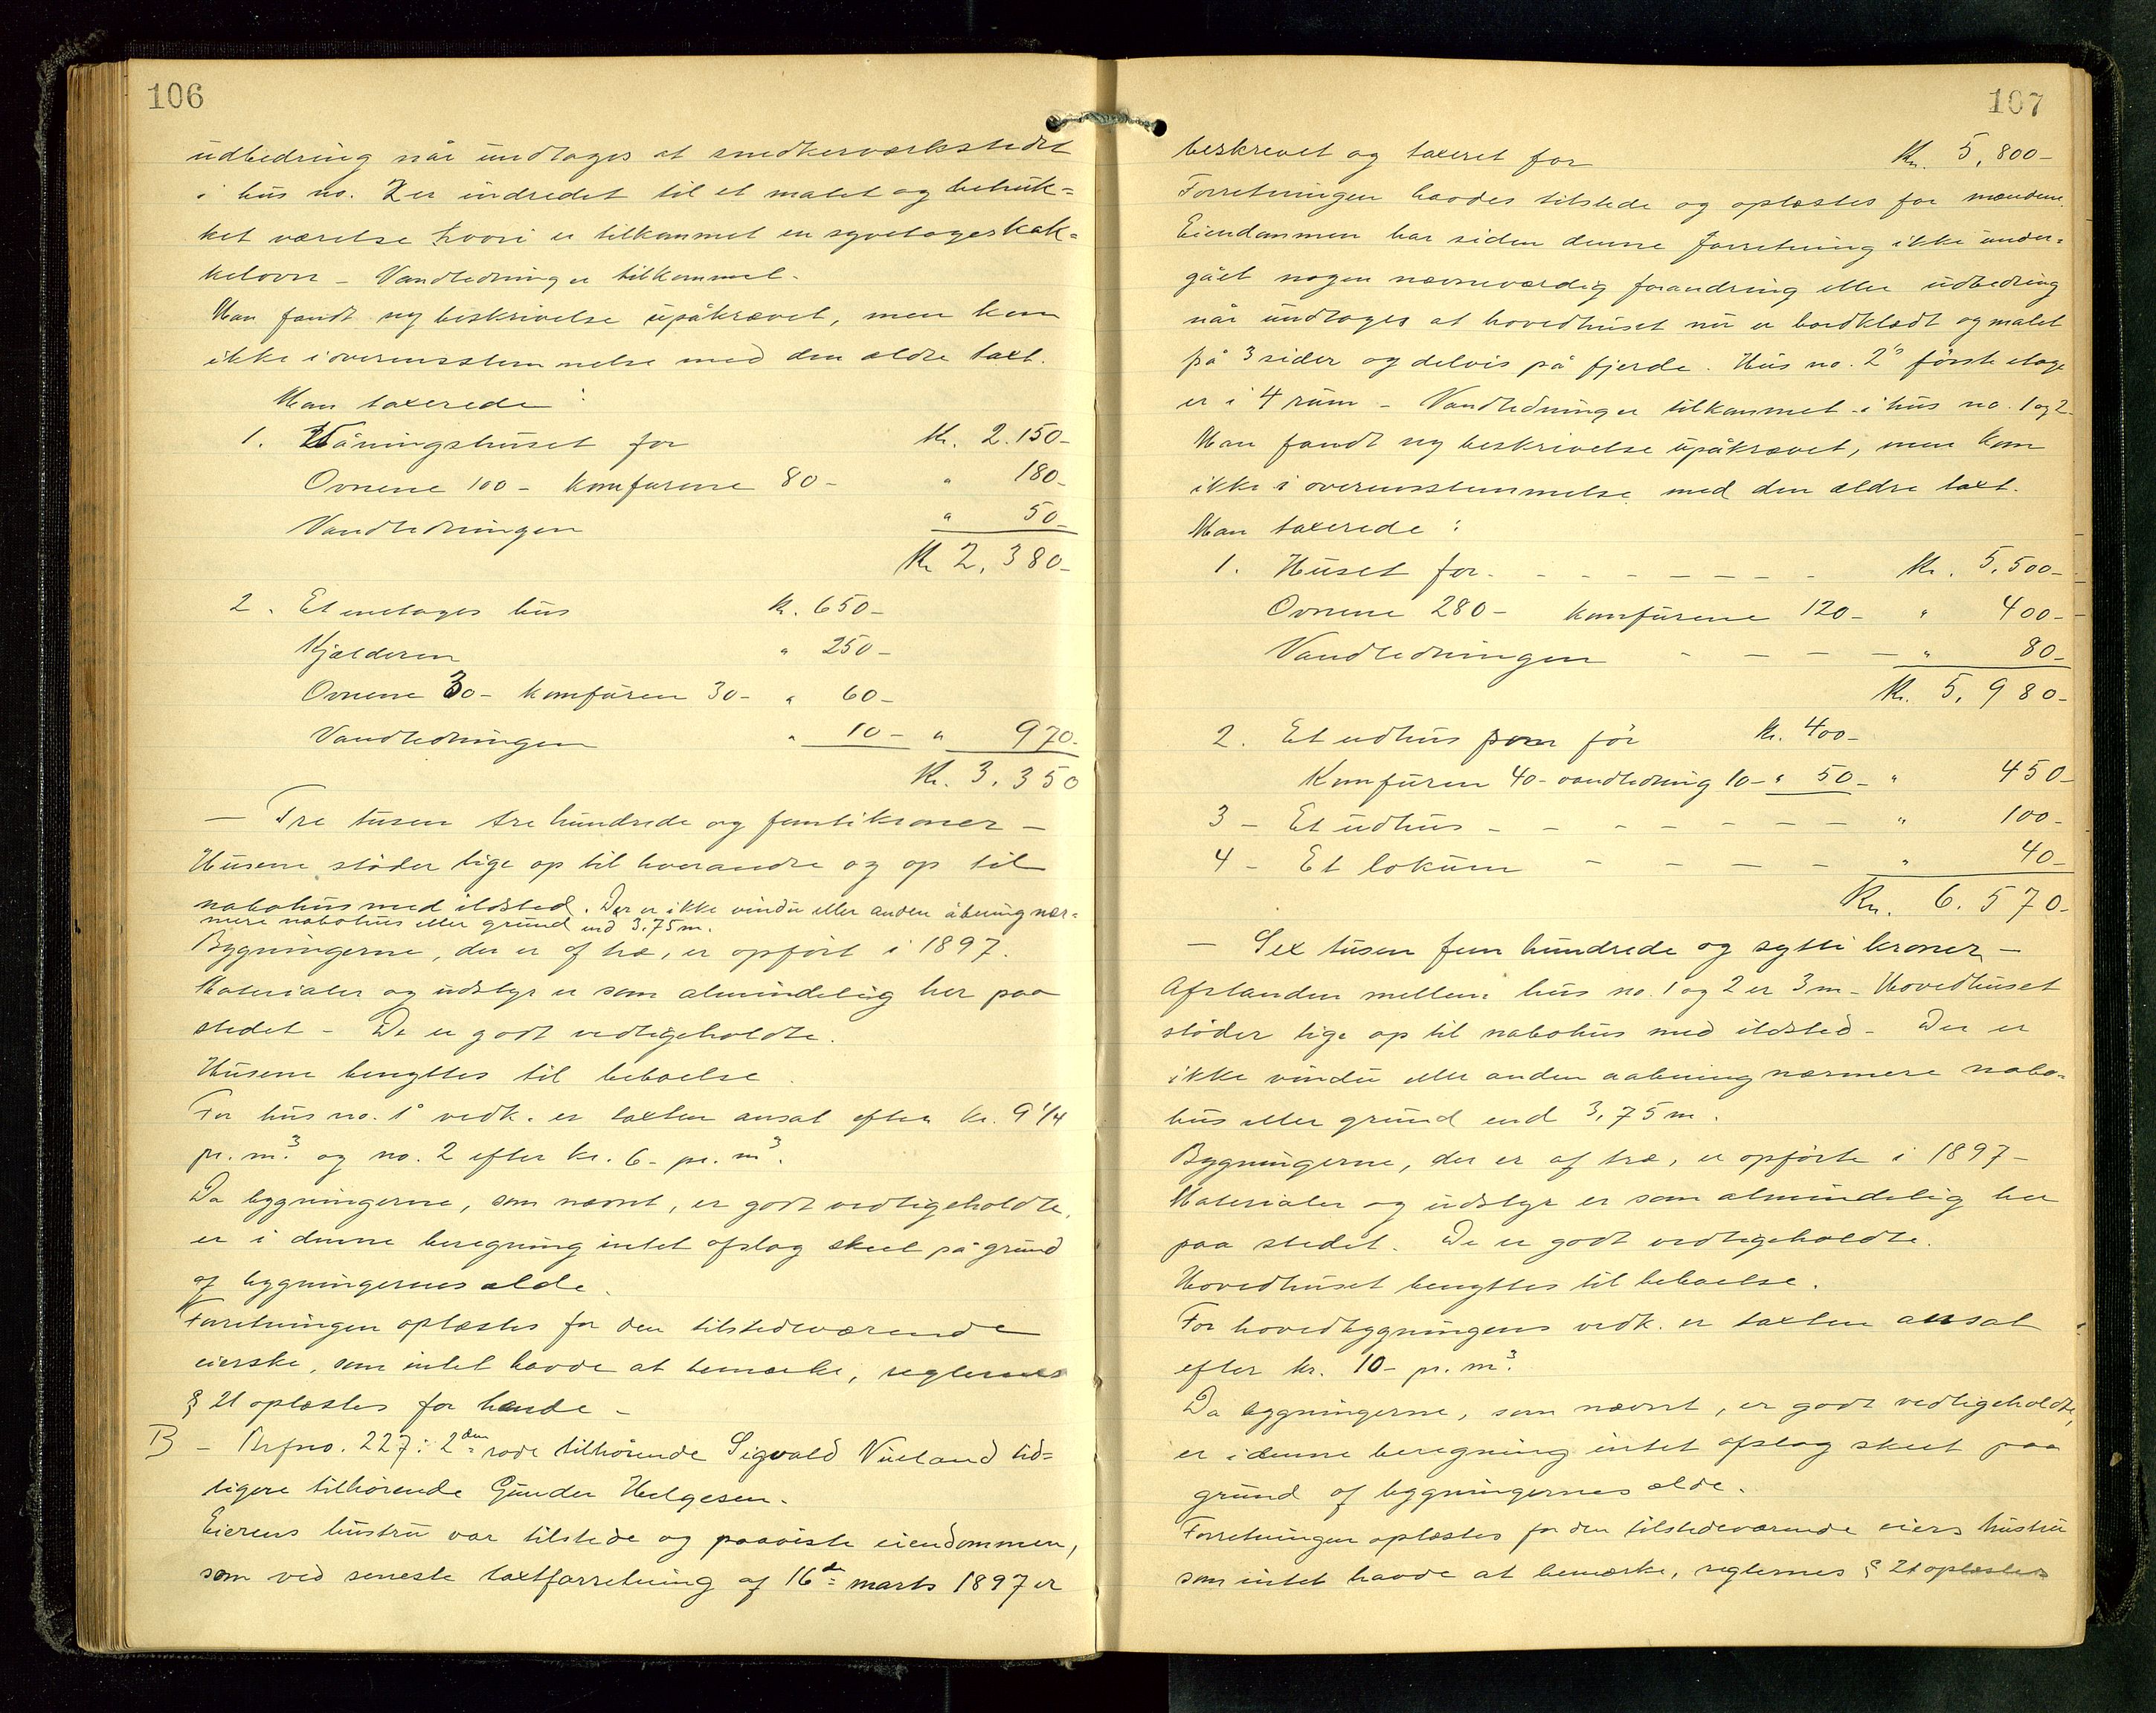 106
udbedring når undtages at snedkerværkstedet
i hus no. 2 er indredet til et malet og betruk=
ket værelse hvori er tilkommet en syvetagers kak=
kelovn - Vandledning er tilkommet.
Man fandt ny beskrivelse upåkrævet, men kom
ikke i overensstemmelse med den ældre taxt.
Man taxerede :
1. Våningshuset for Kr. 2.150-
Ovnene 100 - Komfurene 80- " 180-
Vandledningen " 50-
Kr 2.380-
2. Et enetages hus Kr. 650-
Kjælderen " 250-
Ovnene 30- Komfuren 30- " 60-
Vandledningen " 10- " 970-
Kr. 3.350
- Tre tusen tre hundrede og femti kroner -
Husene støder lige op til hverandre og op til
nabohus med ildsted. Der er ikke vindu eller anden åbning nær=
mere nabohus eller grund end 3,75 m.
Bygningerne, der er af træ, er opført i 1897.
Materialer og udstyr er som almindelig her paa
stedet - De er godt vedligeholdte.
Husene benyttes til beboelse.
For hus no. 1s vedk. er taxten ansat efter kr. 9 1/4
pr. m3. og no. 2 efter kr. 6- pr. m3.
Da bygningerne, som nævnt, er godt vedligeholdte,
er i denne beregning intet afslag skeet på grund
af bygningernes ælde.
Forretningen oplæstes for den tilstedeværende
eierske, som intet havde at bemærke, reglernes
§ 21 oplæstes for hende -
B - Mrfno. 227 i 2den rode tilhørende Sigvald Vueland tid=
ligere tilhørende Gunder Helgesen.
Eierens hustru var tilstede og paaviste eiendommen,
som ved seneste taxtforretning af 16de marts 1897 er
107
beskrevet og taxeret for Kr. 5,800-
Forretningen havdes tilstede og oplæstes for mændene.
Eiendommen har siden denne forretning ikke under=
gået nogen nævneværdig forandring eller udbedring
når undtages at hovedhuset nu er bordklædt og malet
på 3 sider og delvis på fjerde. Hus no. 2s første etage
er i 4 rum - Vandledninger tilkommet i hus no. 1 og 2
Man fandt ny beskrivelse upåkrævet, men kom
ikke i overensstemmelse med den ældre taxt.
Man taxerede :
1. Huset for - - - - - - - - Kr. 5.500-
Ovnene 280- Komfurene 120- " 400-
Vandledningen - - - - " 80-
Kr. 5,980-
2. Et udhus som før Kr. 400-
Komfuren 40- vandledning 10- " 50- " 450-
3 - Et udhus - - - - - - - - " 100-
4 - Et lokum - - - - - " 40-
Kr. 6.570-
- Sex tusen fem hundrede og sytti kroner -
Afstanden mellem hus no. 1 og 2 er 3 m - Hovedhuset
støder lige op til nabohus med ildsted - Der er
ikke vindu eller anden aabning nærmere nabo=
hus eller grund end 3,75 m.
Bygningerne, der er af træ, er opførte i 1897 -
Materialer og udstyr er som almindelig her
paa stedet. De er godt vedligeholdte.
Hovedhuset benyttes til beboelse.
For hovedbygningens vedk. er taxten ansat
efter kr. 10- pr. m3.
Da bygningerne, som nævnt, er godt vedligeholdte,
er i denne beregning intet afslag skeet paa
grund af bygningernes ælde.
Forretningen oplæstes for den tilstedeværende eiers hustru
som intet havde at bemærke, reglernes § 21 oplæstes